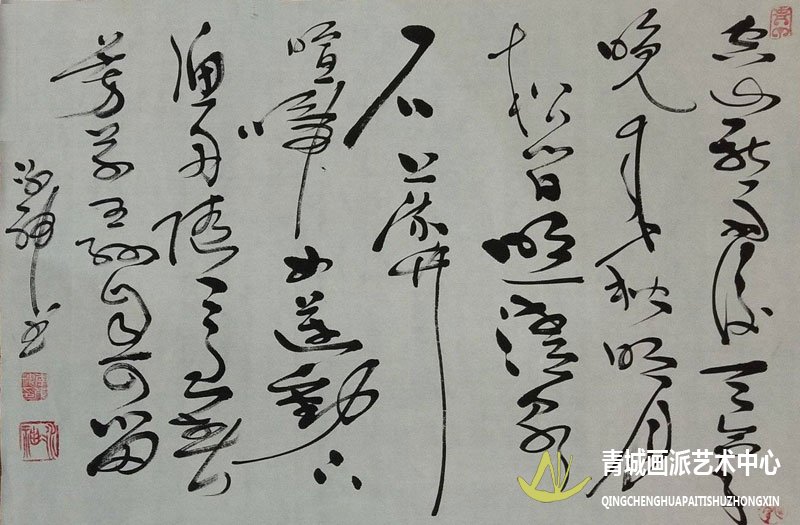 空山新雨後天氣
晚來秋明月
松間照清泉
石上流竹
喧歸女蓮動下
漁舟隨意春
芳歇王孫自可留
書
青城画派艺术中心
QINGCHENGHUAPAITISHUZHONGXIN